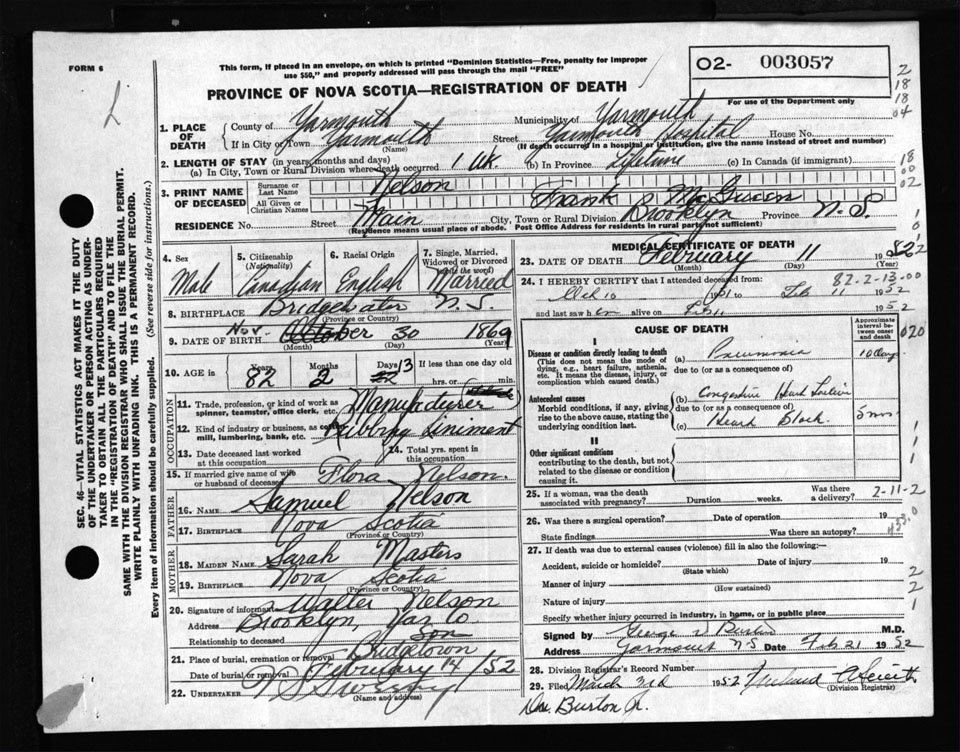 FORM 6
This form, if placed in an envelope, on which is printed "Dominion Statistics—Free, penalty for improper
use $50," and properly addressed will pass through the mail "FREE"
O2- 003057
For use of the Department only
PROVINCE OF NOVA SCOTIA—REGISTRATION OF DEATH
L
2
18
18
04
18
00
02
1. PLACE OF DEATH { County of Yarmouth Municipality of Yarmouth
If in City or Town Yarmouth Street Yarmouth Hospital House No.
(Name) (If death occurred in a hospital or institution, give the name instead of street and number)
2. LENGTH OF STAY (in years, months and days)
(a) In City, Town or Rural Division where death occurred 1 wk. (b) In Province Lifetime (c) In Canada (if immigrant)
3. PRINT NAME OF DECEASED { Surname or Last Name Nelson
All Given or Christian Names Frank
RESIDENCE No. Street Main City, Town or Rural Division Brooklyn Province N. S.
(Residence means usual place of abode. Post Office Address for residents in rural parts not sufficient)
4. Sex Male
5. Citizenship (Nationality) Canadian
6. Racial Origin English
7. Single, Married, Widowed or Divorced (write the word) Married
8. BIRTHPLACE Bridgewater N. S.
(Province or Country)
9. DATE OF BIRTH Nov. October 30 1869
(Month) (Day) (Year)
10. AGE in Years 82 Months 2 13 If less than one day old
hrs. or min.
OCCUPATION
11. Trade, profession, or kind of work as spinner, teamster, office clerk, etc. Manufacturer
12. Kind of industry or business, as mill, lumbering, bank, etc. Liniment
13. Date deceased last worked at this occupation
14. Total yrs. spent in this occupation
15. If married give name of wife or husband of deceased Flora Nelson.
FATHER
16. NAME Samuel Nelson
17. BIRTHPLACE Nova Scotia
(Province or Country)
MOTHER
18. MAIDEN NAME Sarah Masters
19. BIRTHPLACE Nova Scotia
(Province or Country)
20. Signature of informant Walter Nelson
Address Brooklyn, Yar Co
Relationship to deceased Son
21. Place of burial, cremation or removal Bridgetown
Date of burial or removal February 14 /52
22. UNDERTAKER
(Name and address)
MEDICAL CERTIFICATE OF DEATH
23. DATE OF DEATH February 11 19
(Month) (Day) (Year)
82-2-13-00
24. I HEREBY CERTIFY that I attended deceased from:
1951 to Feb 11 1952
and last saw h alive on Feb 11 1952
020
CAUSE OF DEATH
Approximate interval between onset and death
I
Disease or condition directly leading to death
(This does not mean the mode of dying, e.g., heart failure, asthenia, etc. It means the disease, injury, or complication which caused death.)
(a) Pneumonia 10 days
due to (or as a consequence of)
Antecedent causes
Morbid conditions, if any, giving rise to the above cause, stating the underlying condition last.
(b) Congestive Heart Failure
due to (or as a consequence of)
(c) Heart Block. 5 mos
II
Other significant conditions
contributing to the death, but not related to the disease or condition causing it.
25. If a woman, was the death associated with pregnancy? Duration weeks. Was there a delivery?
2-11-2
26. Was there a surgical operation? Date of operation 19
State findings Was there an autopsy?
433.0
27. If death was due to external causes (violence) fill in also the following:—
Accident, suicide or homicide? Date of injury 19
(State which)
Manner of injury
(How sustained)
Nature of injury
Specify whether injury occurred in industry, in home, or in public place
Signed by George D Burton M.D.
Address Yarmouth NS Date Feb 21 1952
28. Division Registrar's Record Number
29. Filed March 3rd 1952
(Division Registrar)
Dr. Burton Jr.
SEC. 46—VITAL STATISTICS ACT MAKES IT THE DUTY
OF THE UNDERTAKER OR PERSON ACTING AS UNDER-
TAKER TO OBTAIN ALL THE PARTICULARS REQUIRED
IN THE "REGISTRATION OF DEATH" AND TO FILE THE
SAME WITH THE DIVISION REGISTRAR WHO SHALL ISSUE THE BURIAL PERMIT.
WRITE PLAINLY WITH UNFADING INK. THIS IS A PERMANENT RECORD.
Every item of information should be carefully supplied. (See reverse side for instructions.)